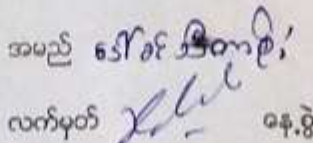 အမည် ဒေါ်ခင်သီတာစိုး
လက်မှတ် နေ့စွဲ